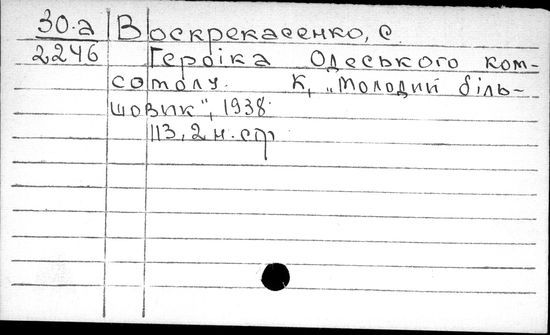 30.а Воскрекасенко, С.
2246 Героїка Одеського ком-
сомолу. К, „Молодий біль-
шовик", 1938.
113, 2 н. стр